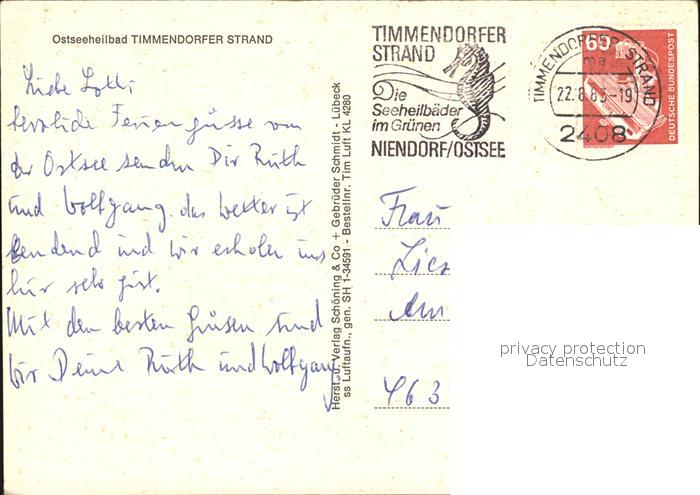 Ostseeheilbad TIMMENDORFER STRAND
Liebe Lotti
herzliche Feriengrüsse von
der Ostsee senden Dir Ruth
und Wolfgang. das Wetter ist
blendend und wir erholen uns
hier sehr gut.
Mit den besten Grüsen sind
wir Deine Ruth und Wolfgang
Herst. u. Verlag Schöning & Co + Gebrüder Schmidt - Lübeck
ss Luftaufn., gen. SH 1-34591 - Bestellnr. Tim Luft KL 4280
TIMMENDORFER
STRAND
Die
Seeheilbäder
im Grünen
NIENDORF/OSTSEE
TIMMENDORFER STRAND
ma
22.8.83-19
2408
60
DEUTSCHE BUNDESPOST
Frau
Am
463
privacy protection
Datenschutz